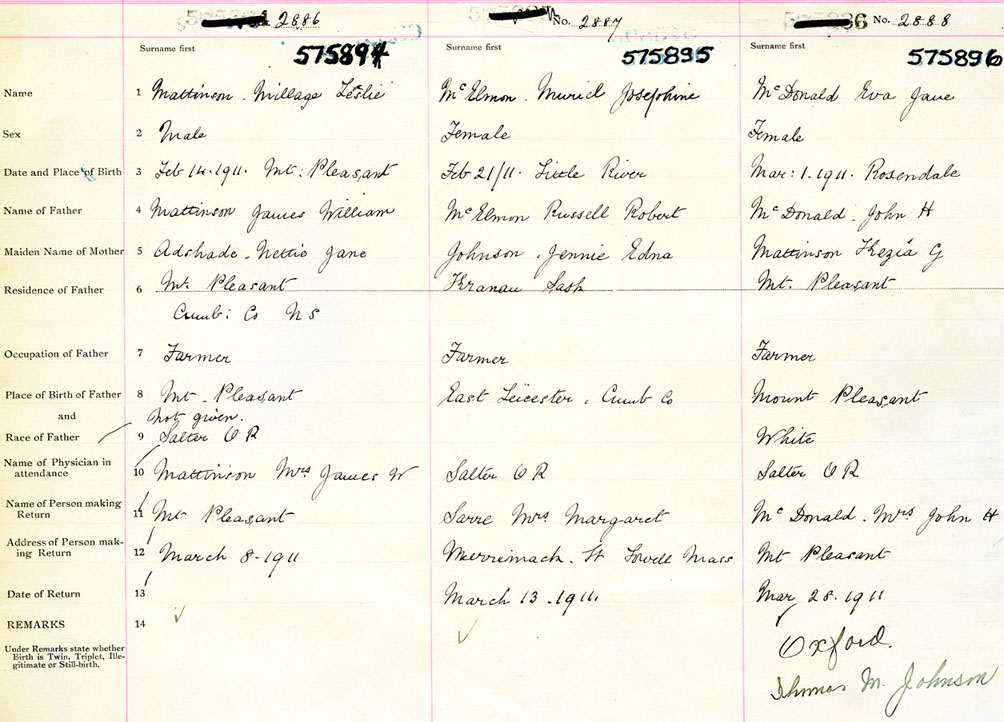 2886 No. 2887 No. 2888
Surname first 575894 Surname first 575895 Surname first 575896
Name 1 Mattinson. Millage Leslie McElmon. Muriel Josephine McDonald Eva Jane
Sex 2 Male Female Female
Date and Place of Birth 3 Feb 14.1911. Mt: Pleasant Feb 21/11. Little River Mar: 1.1911. Rosendale
Name of Father 4 Mattinson James William McElmon Russell Robert McDonald. John H
Maiden Name of Mother 5 Adshade. Nettie Jane Johnson. Jennie Edna Mattinson Kezia G
Residence of Father 6 Mt. Pleasant Sask Mt. Pleasant
Cumb: Co N S
Occupation of Father 7 Farmer Farmer Farmer
Place of Birth of Father 8 Mt. Pleasant East Leicester, Cumb Co Mount Pleasant
and Not given.
Race of Father 9 Salter O R White
Name of Physician in
attendance 10 Mattinson Mrs James W Salter O R Salter O R
Name of Person making
Return 11 Mt Pleasant Mrs Margaret McDonald. Mrs John H
Address of Person mak-
ing Return 12 March 8-1911 Merrimack. St Lowell Mass Mt Pleasant
Date of Return 13 March 13.1911. Mar 28.1911
REMARKS 14 Oxford.
Under Remarks state whether
Birth is Twin, Triplet, Ille-
gitimate or Still-birth.
Thomas M. Johnson